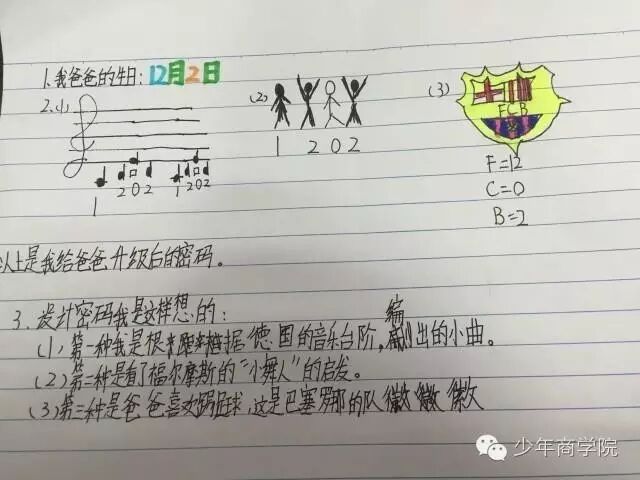 1.我爸爸的生日：12月2日
2.(1)
(2)
(3)
FCB
1 202 1202
1 202
F=12
C=0
B=2
以上是我给爸爸升级后的密码。
3.设计密码我是这样想的：
(1)第一种我是根据德国的音乐台阶，编出的小曲。
(2)第二种是看了福尔摩斯的“小舞人”的启发。
(3)第三种是爸爸喜欢踢足球，这是巴塞罗那的队
少年商学院